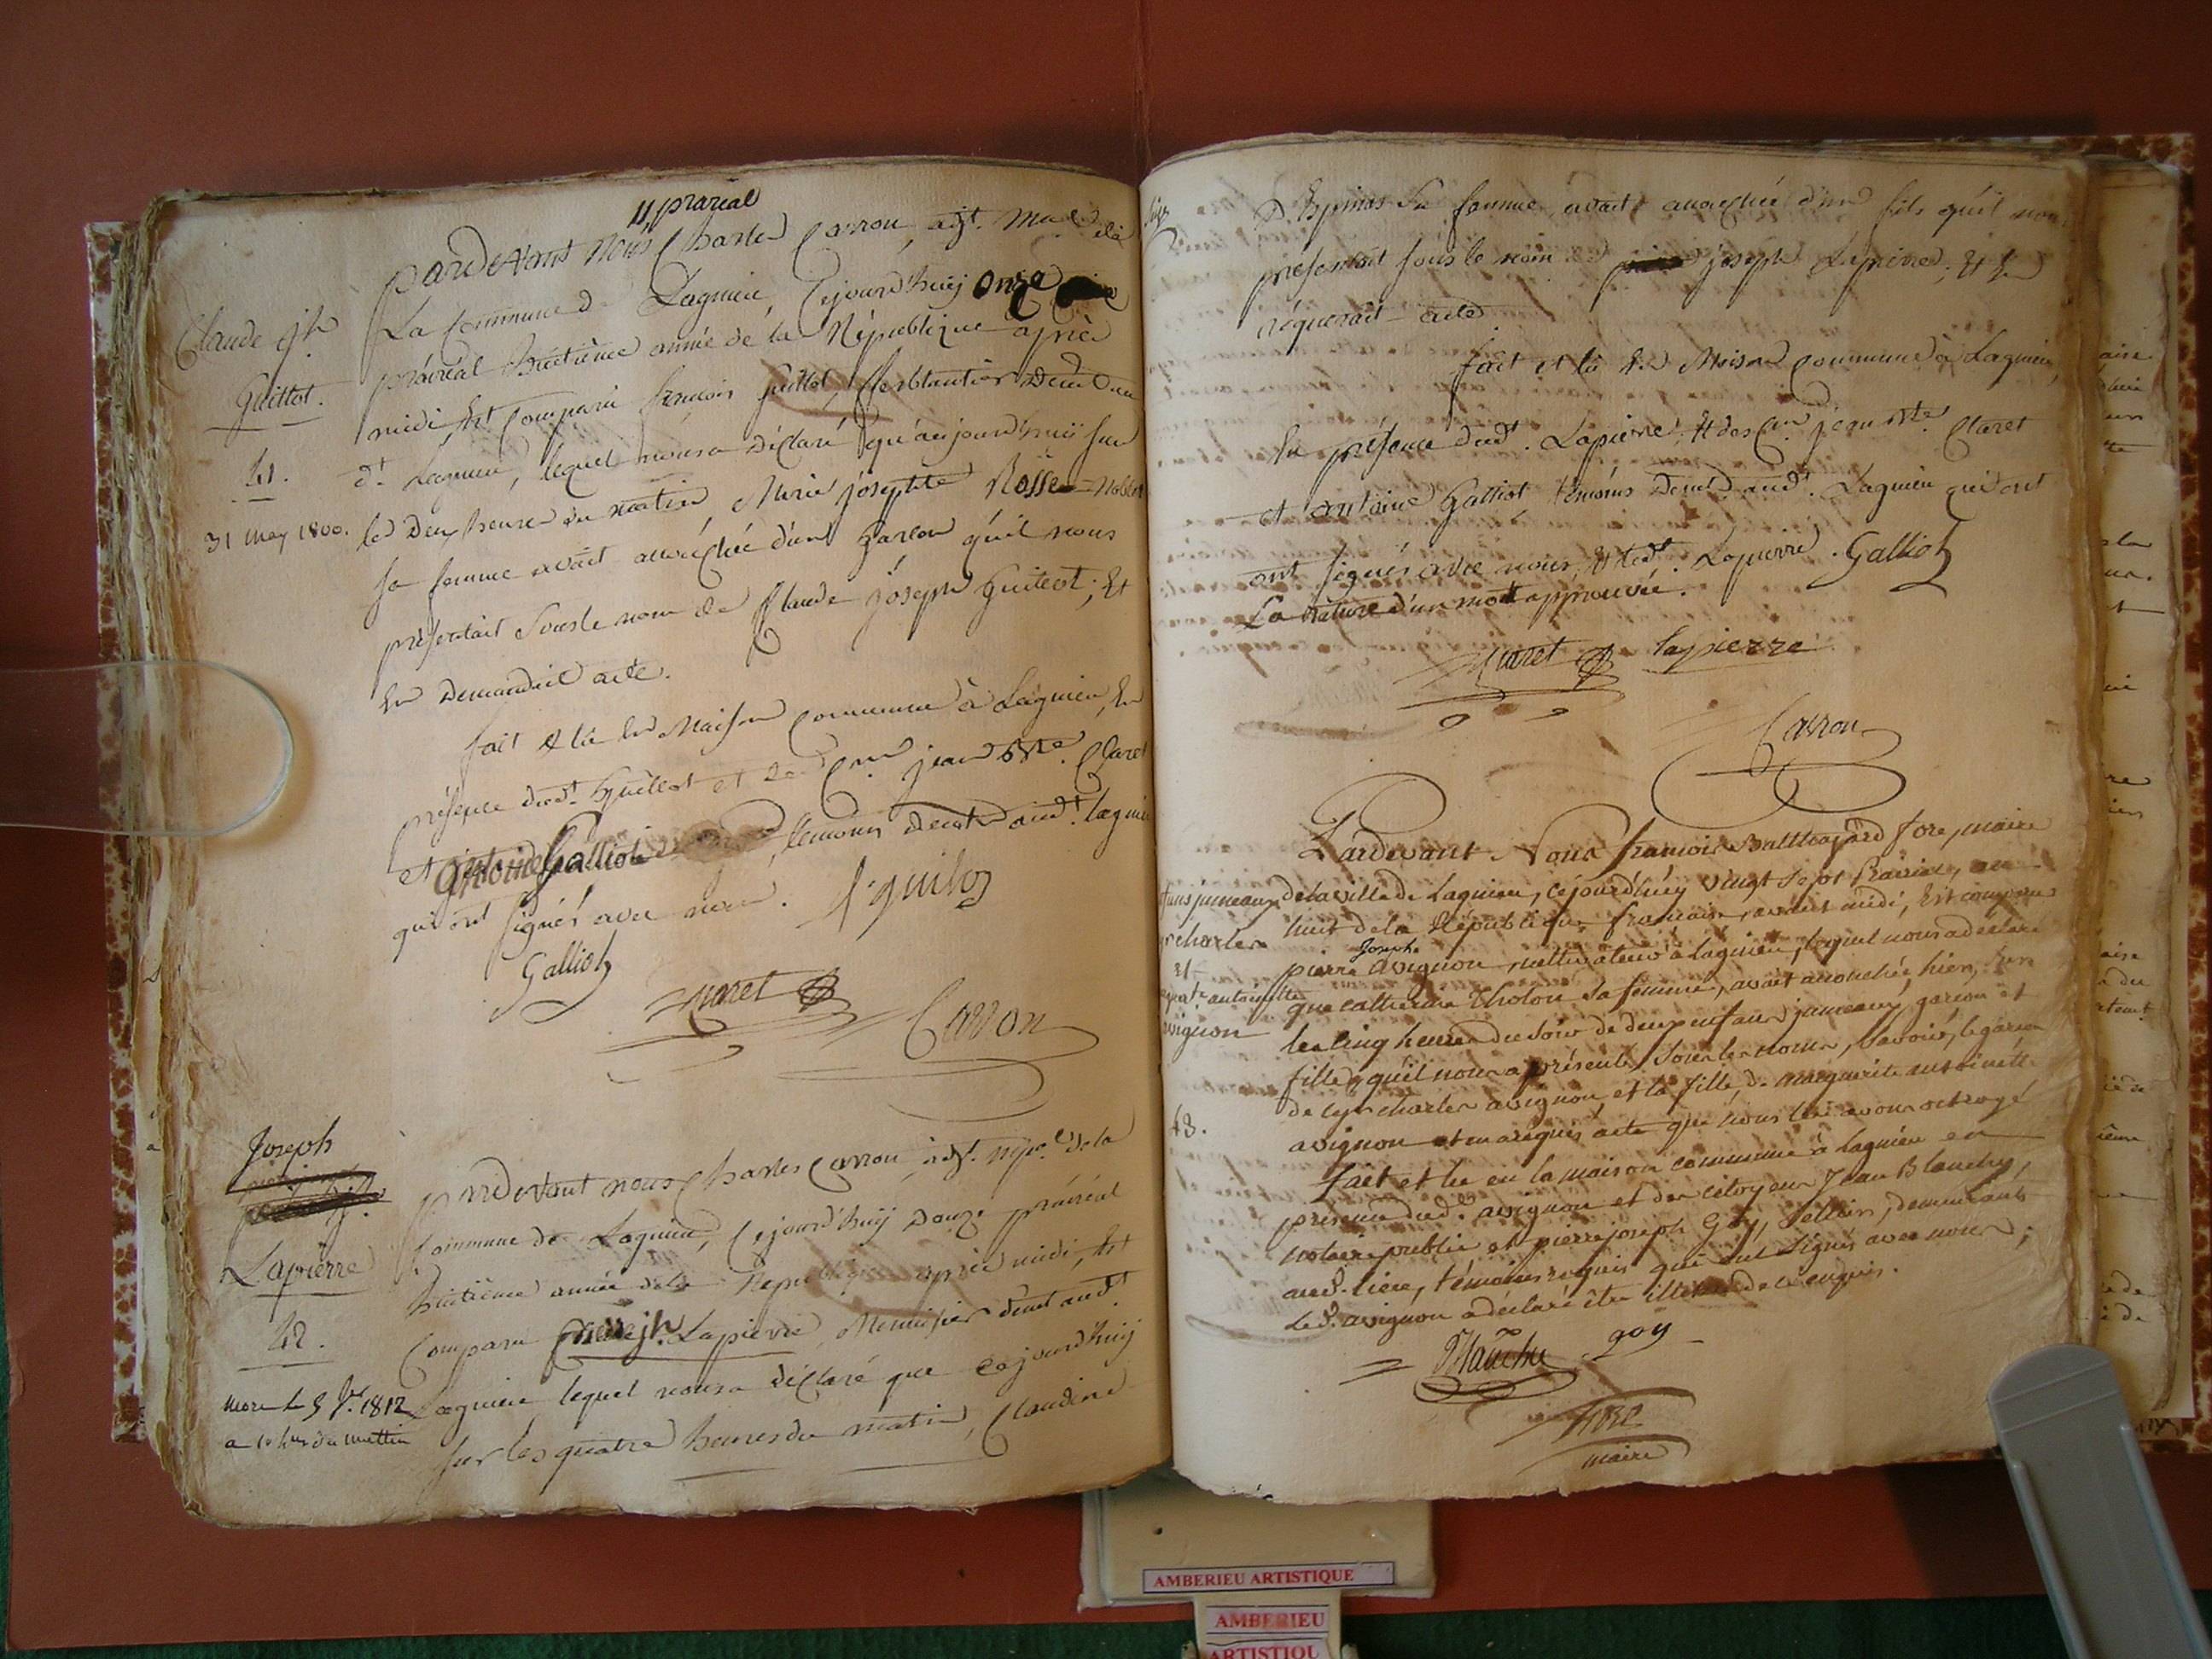 11 prarial
Pardevant Nous Charles Carron, agt. Mual de
La Commune de Lagnieu, Cejourd'huy onze
prairéal huitième année de la République après
midi, Est Comparu francois Guillot, ferblantier Demt. au
dt. Lagnieu, lequel nous a Déclaré qu'aujourd'huÿ sur
les Deux heures du matin, Marie joséphte Rosse
sa femme avait accouchée d'un Garcon qu'il nous
présentait Sous le nom de Claude joseph Guillot; Et
En Demandait acte.
fait & lû En Maison Commune à Lagnieu, En
présence dudt. Guillot et des Cens. jean Bte. Claret
et Antoine Galliot, témoins Demts. audt. lagnieu
qui ont signés avec nous. f. guilot
Galliot
Claret
Carron
Claude jh
Guillot.
41.
31 may 1800.
Pardevant nous Charles Carron, adjt. mpal. de la
Commune de Lagnieu, Cejourd'huÿ Douze prairéal
huitième année de la République après midi, Est
Comparu jh. Lapierre, Menuisier demt. audt.
Lagnieu lequel nous a Déclaré que Cejourd'huÿ
sur les quatre heures du matin, Claudine
Joseph
Lapierre
42.
mort le 5 1812
a 10 hres du mattin
D. Espinas Sa femme, avait accouchée d'un fils qu'il nous
présentait sous le nom de joseph Lapierre; Et En
réquerait acte
fait et lû En Maison Commune à Lagnieu,
En présence dudt. Lapierre, Et des Cens. jean Bte. Claret
et antoine Galliot témoins Demts. audt. Lagnieu qui ont
ont signés avec nous, Et ledt. Lapierre. Galliot
La rature d'un mot approuvée.
Claret lapierre
Carron
Pardevant Nous francois Balthazard fore, maire
de la ville de Lagnieu, cejourd'huy vingt Sept Prairial, an
huit de la République francaise, avant midi, Est comparu
Joseph
pierre avignon, cultivateur à Lagnieu, lequel nous a déclaré
que catherine Tholon sa femme, avait accouchée, hier, sur
les cinq heures du soir de deux enfans jumeaux, garcon et
fille, qu'il nous a présentés sous les noms, savoir, le garcon
de cyr charles avignon et la fille de marguerite antoinette
avignon et en a réquis acte que nous lui avons octroyé
fait et lu en la maison commune à Lagnieu en
présence dud. avignon et des citoyens Jean Blanchy,
notaire public, et pierre joseph Goy, Sellier, demeurants
aud. lieu, témoins requis qui ont signés avec nous;
led. avignon a déclaré être illitéré de ce enquis.
Blanchy goy
fore
maire
fans jumeaux
cyr charles
et
marguerite antoinette
avignon
43.
AMBERIEU ARTISTIQUE
AMBERIEU
ARTISTIQU